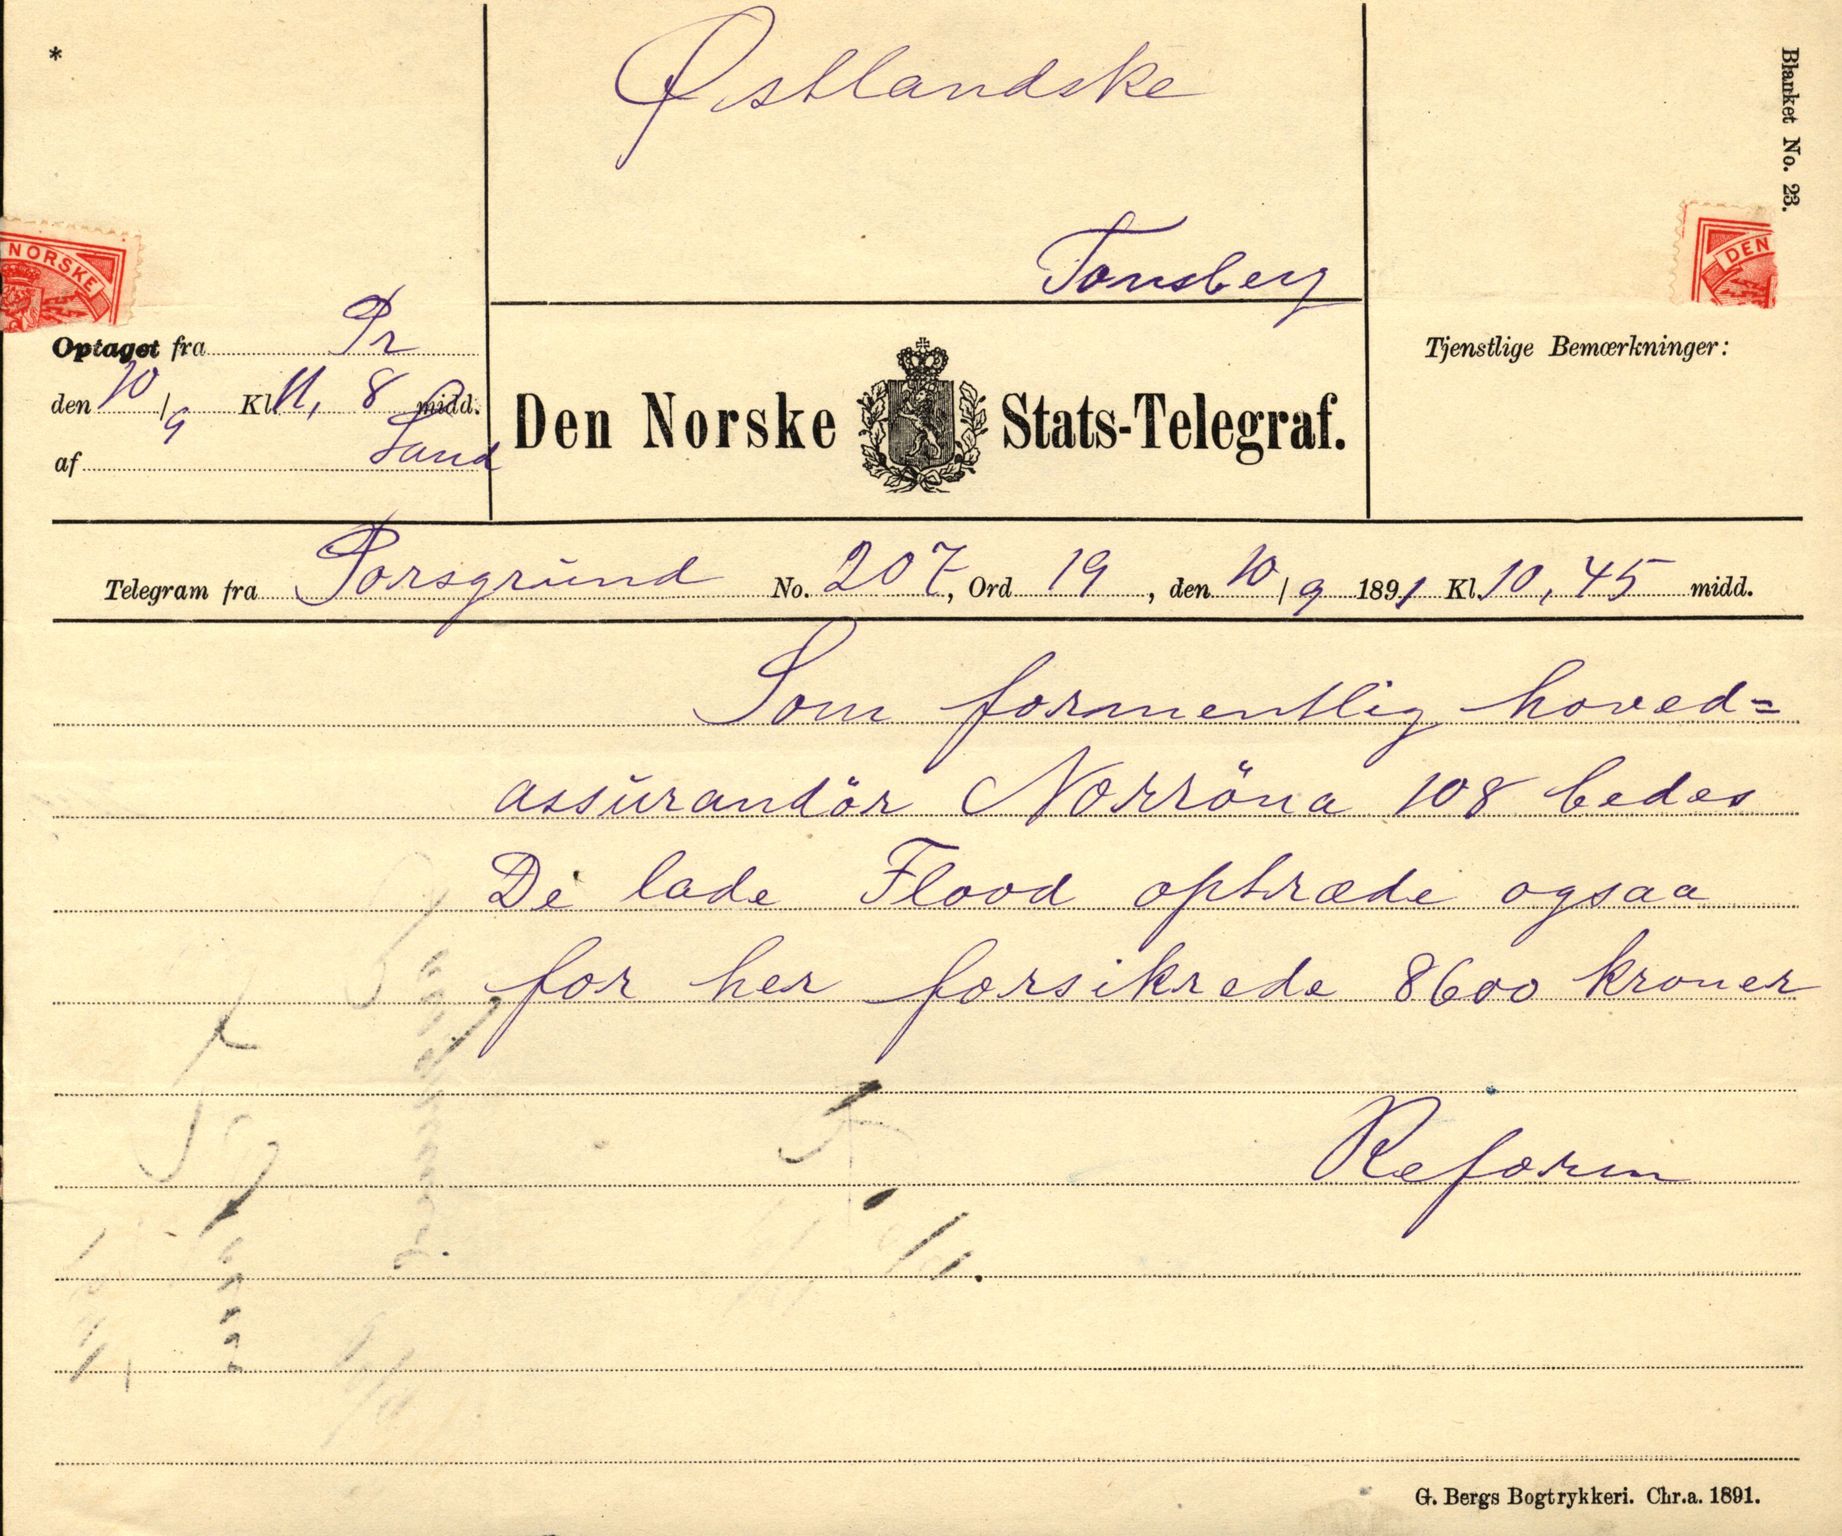 *
Østlandske
Blanket No. 23.
Tonsberg
NORSKE
DEN
Optaget fra Pr
den 10/9 Kl. 11, 8 midd.
af Sand
Den Norske Stats-Telegraf.
Tjenstlige Bemærkninger:
Telegram fra Porsgrund No. 207, Ord 19, den 10/9 1891 Kl. 10,45 midd.
Som formentlig hoved=
assurandör Norröna 108 bedes
De lade Flood optræde ogsaa
for her forsikrede 8600 kroner
Reform
G. Bergs Bogtrykkeri. Chr.a. 1891.